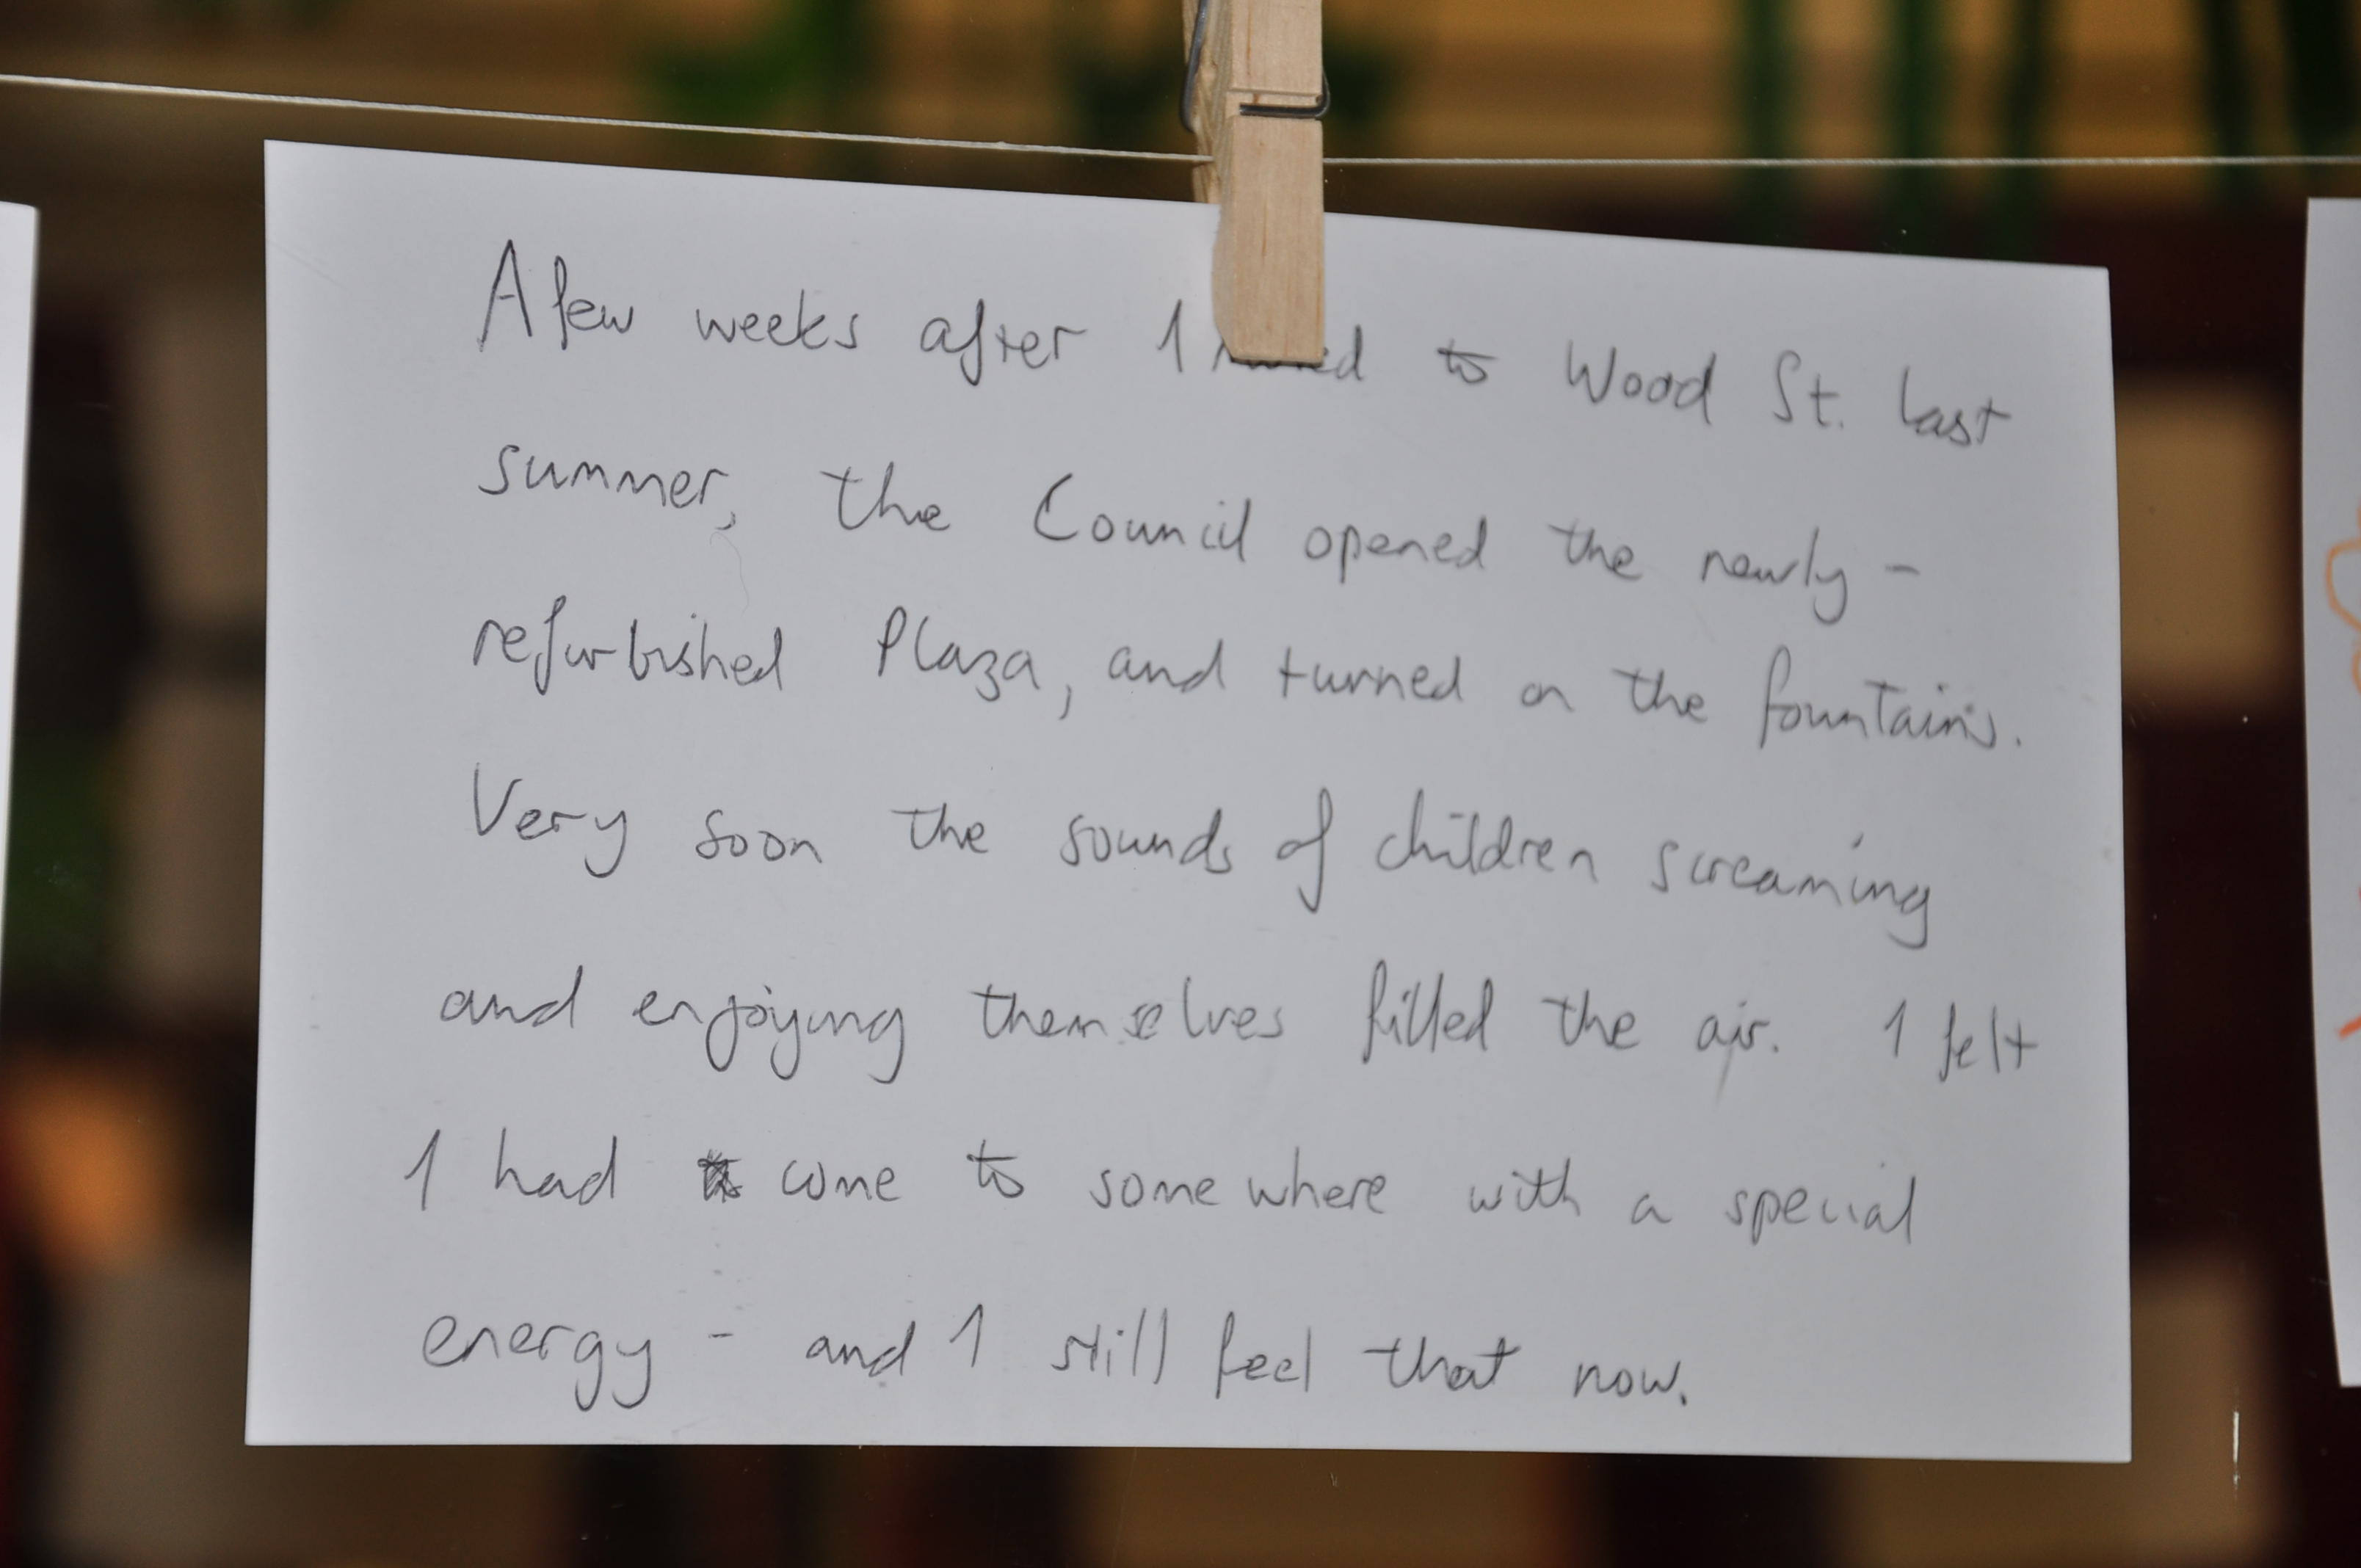 A few weeks after I moved to Wood St. last
summer, the Council opened the newly-
refurbished Plaza, and turned on the fountains.
Very soon the sounds of children screaming
and enjoying themselves filled the air. I felt
I had come to somewhere with a special
energy - and I still feel that now.